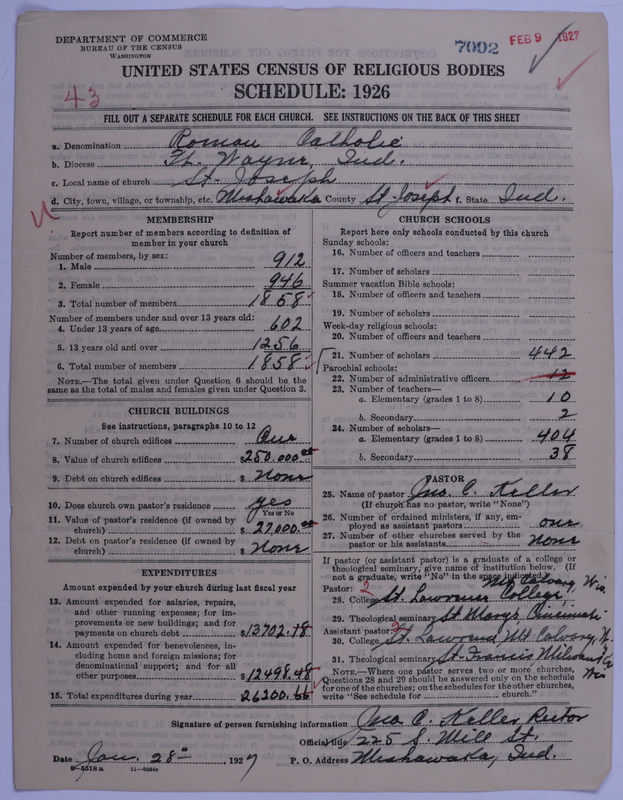 DEPARTMENT OF COMMERCE
BUREAU OF THE CENSUS
WASHINGTON
7092 FEB 9 1927
UNITED STATES CENSUS OF RELIGIOUS BODIES
43
SCHEDULE: 1926
FILL OUT A SEPARATE SCHEDULE FOR EACH CHURCH. SEE INSTRUCTIONS ON THE BACK OF THIS SHEET
a. Denomination Roman Catholic
b. Diocese Ft. Wayne, Ind.
c. Local name of church St. Joseph
d. City, town, village, or township, etc. Mishawaka County St Joseph f. State Ind.
MEMBERSHIP
Report number of members according to definition of
member in your church
Number of members, by sex:
1. Male 912
2. Female 946
3. Total number of members 1858
Number of members under and over 13 years old:
4. Under 13 years of age 602
5. 13 years old and over 1256
6. Total number of members 1858
NOTE.—The total given under Question 6 should be
same as the total of males and females given under Question 3.
CHURCH BUILDINGS
See instructions, paragraphs 10 to 12
7. Number of church edifices One
8. Value of church edifices $250.000.00
9. Debt on church edifices $ None
10. Does church own pastor's residence yes
Yes or No
11. Value of pastor's residence (if owned by
church) $ 27,000.00
12. Debt on pastor's residence (if owned by
church) $ None
EXPENDITURES
Amount expended by your church during last fiscal year
13. Amount expended for salaries, repairs,
and other running expenses; for im-
provements or new buildings; and for
payments on church debt $13702.18
14. Amount expended for benevolences, in-
cluding home and foreign missions; for
denominational support; and for all
other purposes $12498.48
15. Total expenditures during year 26200.66
CHURCH SCHOOLS
Report here only schools conducted by this church
Sunday schools:
16. Number of officers and teachers
17. Number of scholars
Summer vacation Bible schools:
18. Number of officers and teachers
19. Number of scholars
Week-day religious schools:
20. Number of officers and teachers
21. Number of scholars 442
Parochial schools:
22. Number of administrative officers 12
23. Number of teachers—
a. Elementary (grades 1 to 8) 10
b. Secondary 2
24. Number of scholars—
a. Elementary (grades 1 to 8) 404
b. Secondary 38
PASTOR
25. Name of pastor Jno. C. Keller
(If church has no pastor, write "None")
26. Number of ordained ministers, if any, em-
ployed as assistant pastors one
27. Number of other churches served by the
pastor or his assistants none
If pastor (or assistant pastor) is a graduate of a college or
theological seminary, give name of institution below. (If
not a graduate, write "No" in the space indicated.)
Pastor: 2 Mt Calvary, Wis
28. College St. Lawrence College
29. Theological seminary St Marys Cincinnati
Assistant pastor:
30. College St. Lawrence Mt Calvary, W.
31. Theological seminary St. Francis Milwaukee
Wis
NOTE.—Where one pastor serves two or more churches,
Questions 28 and 29 should be answered only on the schedule
for one of the churches; on the schedules for the other churches,
write "See schedule for church."
Signature of person furnishing information Jno. C. Keller, Rector
Official title 225 S. Mill St.
Date Jan. 28 1927 P. O. Address Mishawaka, Ind.
8—5518a 11—9084a